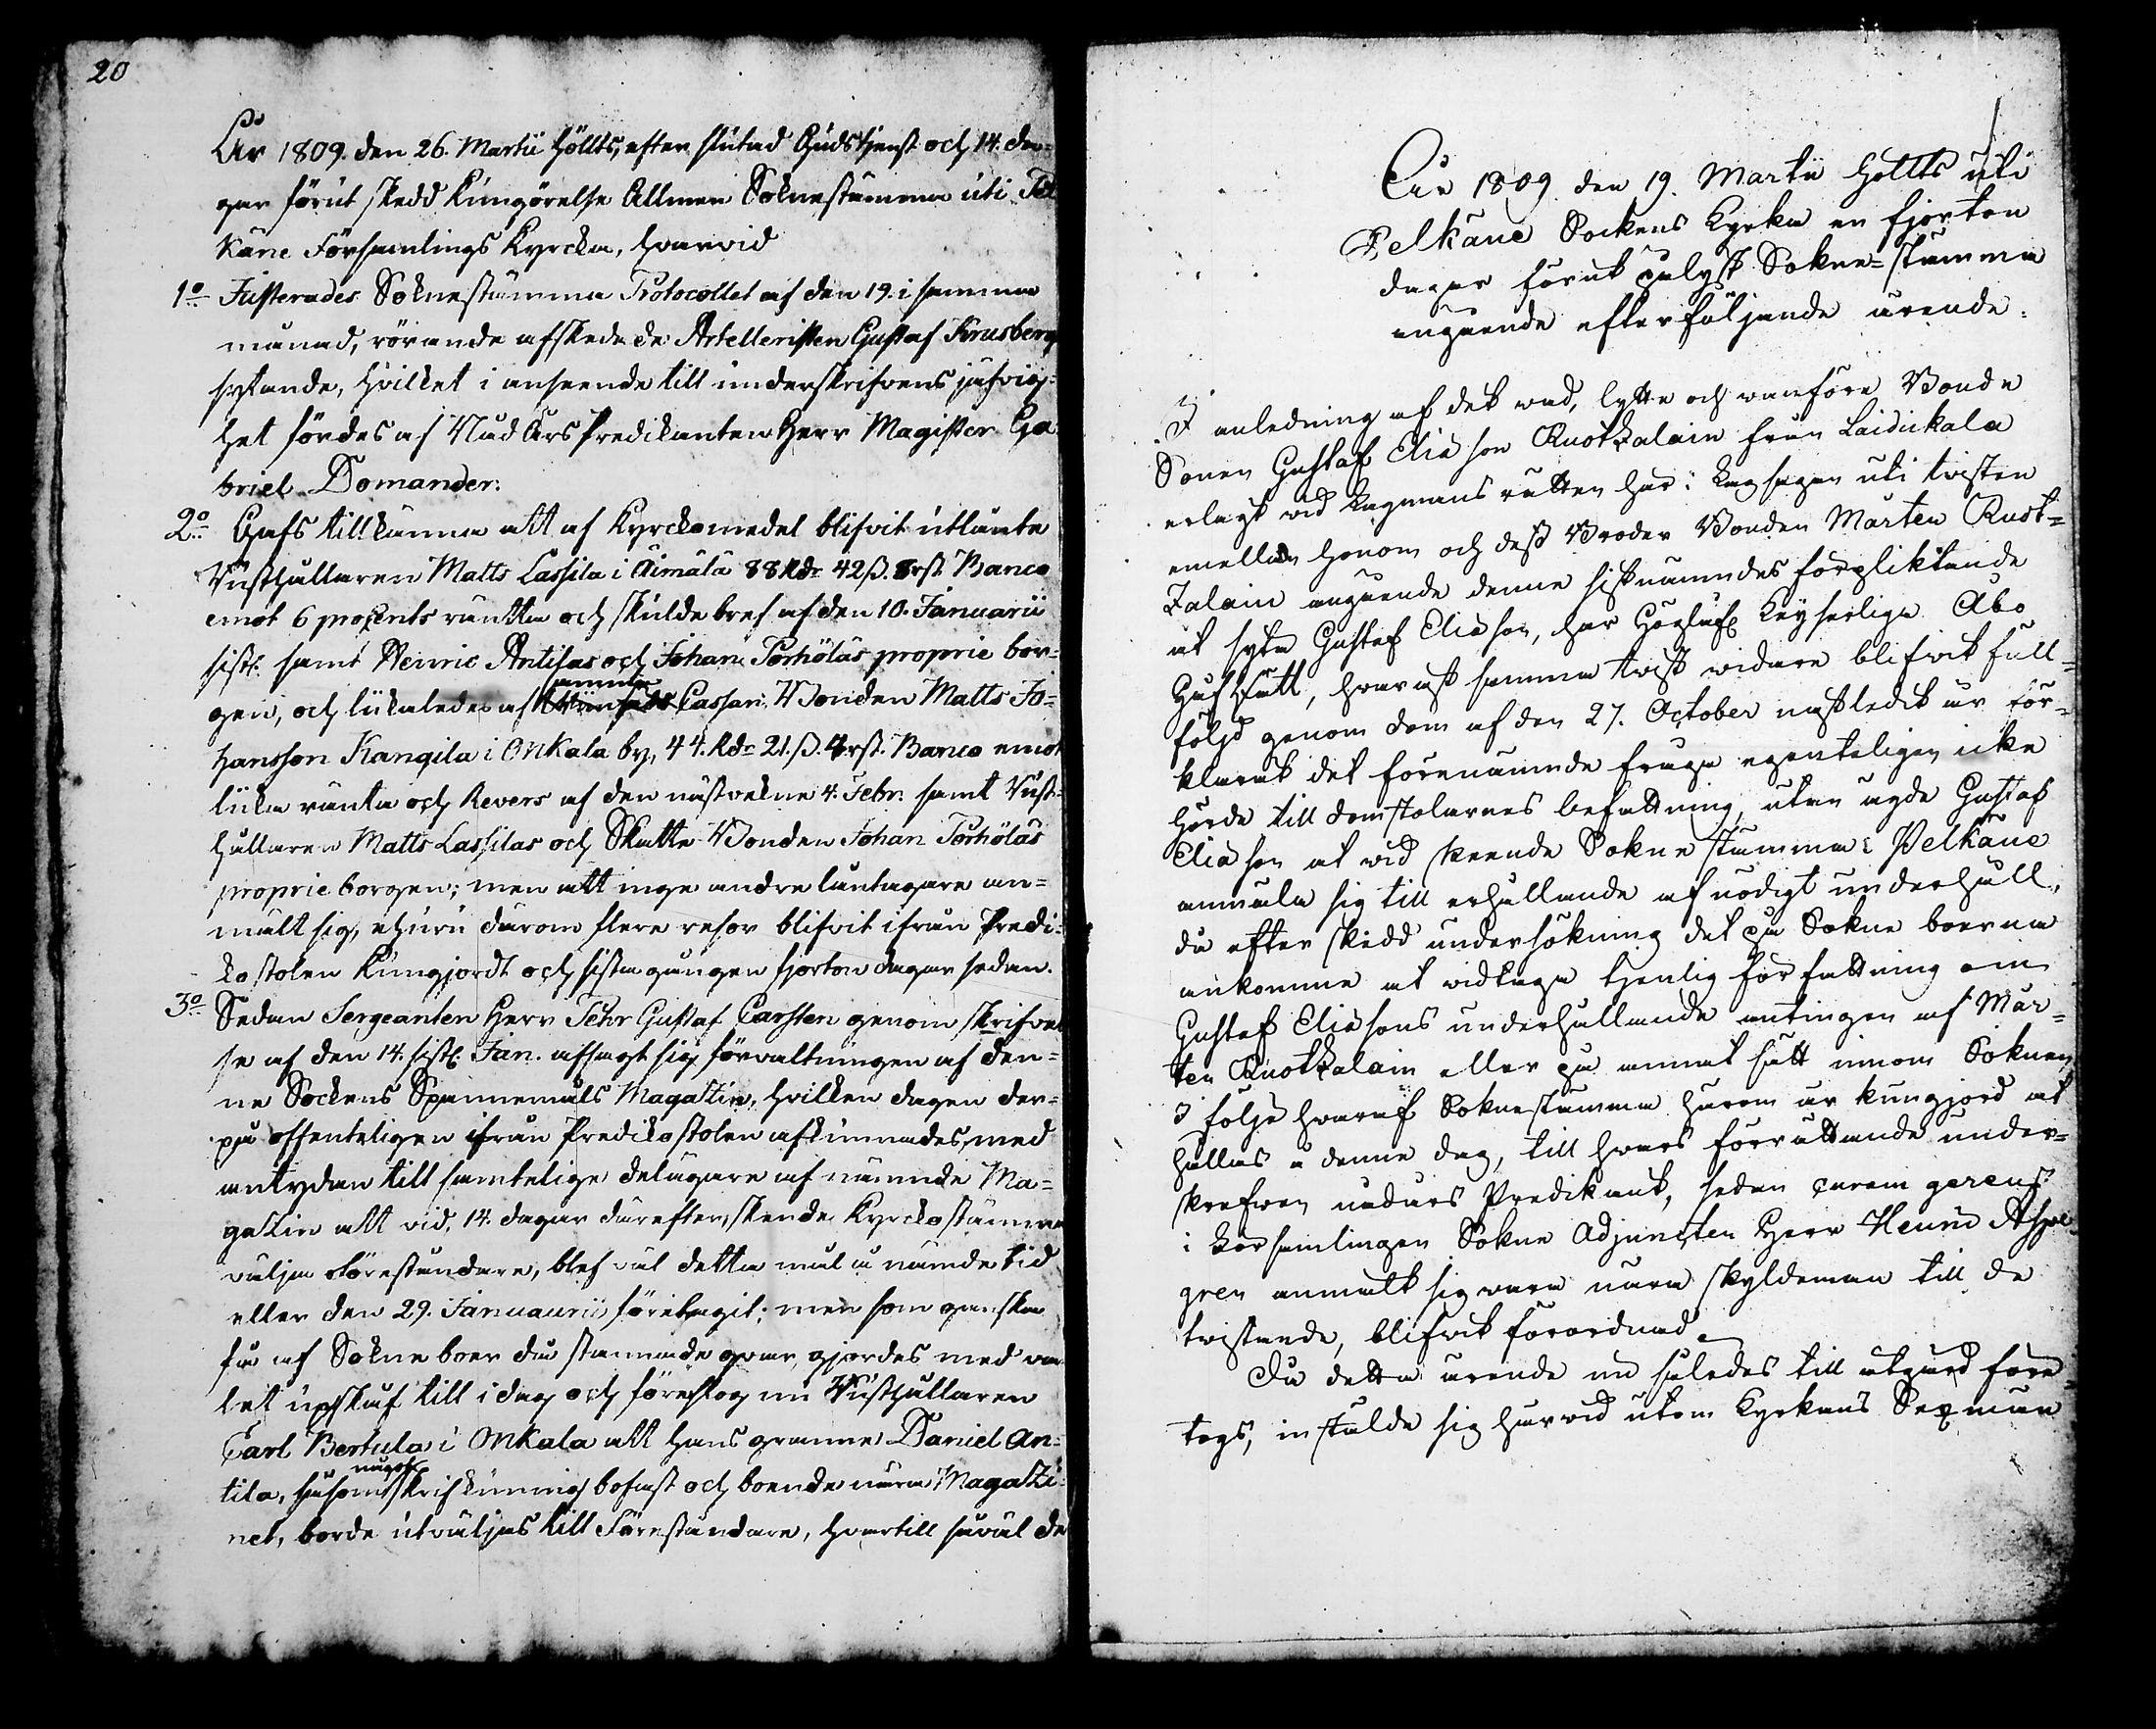 20
År 1809. den 26. Martii höllts, efter slutad Gudstjenst och 14. da=
gar förut skedd kungörelse Allmen Soknestämma uti Pel
käne Församlings Kyrcka, hvarvid
1o Justerades Soknestämma Protocollet af den 19. i samma
månad, rörande afskedade Artelleristen Gustaf Krusberg
sytande, hvilket i anseende till underskrifvens jäfvig=
het fördes af Nådårs Predikanten Herr Magister Ga
briel Domander.
2o Gafs tillkänna att af Kyrckomedel blifvit utlånte
Rusthållaren Matts Lassila i Äimälä 88 Rdr 42 ß. 8 rst. Banco
emot 6 procents räntta och skuldebref af den 10. Januarii
sistl. samt Henric Antilas och Johan Törhöläs proprie bor=
gen, och likaledes af samma Cassan Bonden Matts Jo=
hansson Kangila i Onkala by, 44. Rdr 21. ß. 4 rst. Banco emot
lika ränta och Revers af den nästvekne 4. Febr. samt Rust=
hållaren Matts Lassilas och Skatte Bonden Johan Törhöläs
proprie borgen; men att inga andra låntagare an=
mält sig, ehuru därom flere resor blifvit ifrån Predi=
kostolen kungjordt och sista gången fjorton dagar sedan.
3o Sedan Sergeanten Herr Fehr Gustaf Carsten genom skrifvel
se af den 14. sistl. Jan. afsagt sig förvaltningen af den=
ne Sockens Spannemåls Magazin, hvilken dagen der=
på offenteligen ifrån Predikostolen afkunnades, med
antydan till samtelige delägare af nämnde Ma=
gazin att vid, 14. dagar därefter, skende Kyrckostämma
välja Förestandare, blef väl detta mål å nämde tid
eller den 29. Januaurii företagit; men som ganska
få af Sokneboer då stannade qvar, gjordes med va
let upskuf till i dag och föreslog nu Rusthållaren
Carl Bertula i Onkala att hans granne Daniel An=
tila, såsom något skrifkunnig bofast och boende nära Magazi=
net, borde utväljas till Förestandare, hvartill såväl de
År 1809 den 19. Martii höllts uti
Pelkäne Sockens Kyrka en fjorton
dagar förut pålyst Sokne=stämma
angående efterföljande ärende:
I anledning af det wad, lytte och wanföre Bonde
Sonen Gustaf Eliasson Ruotzalain från Laidickala
erlagt wid Lagmans rätten här i Lagsagan uti twisten
emellan honom och dess Broder Bonden Mårten Ruot=
zalain angående denne sistnämndes förpliktande
at syta Gustaf Eliasson, har Höglofl Keyserliga Åbo
Hof Rätt, hwarest samma twist widare blifwit full=
följd genom dom af den 27. October nästledit år för=
klarat det förenämnde fråga egenteligen icke
hörde till domstolarnes befattning, utan ägde Gustaf
Eliasson at wid skeende Soknestämma i Pelkäne
anmäla sig till erhållande af nödigt underhåll,
då efter skedd undersökning det på Sokneboerna
ankomme at widtaga tjenlig författning om
Gustaf Eliassons underhållande antingen af Mår=
ten Ruotzalain eller på annat sätt innom Soknen,
I följe hwaraf Soknestämma härom är kungjord at
hållas å denne dag, till hwars förrättande under=
skrefwen nådårs Predikant, sedan curam gerens
i Församlingen Sokne Adjuncten Herr Henric Aspe
gren anmält sig wara nära skyldeman till de
twistande, blifwit förordnad.
Då detta ärende nu således till åtgärd före=
togs, instälde sig härwid utom Kyrkans Sexmän